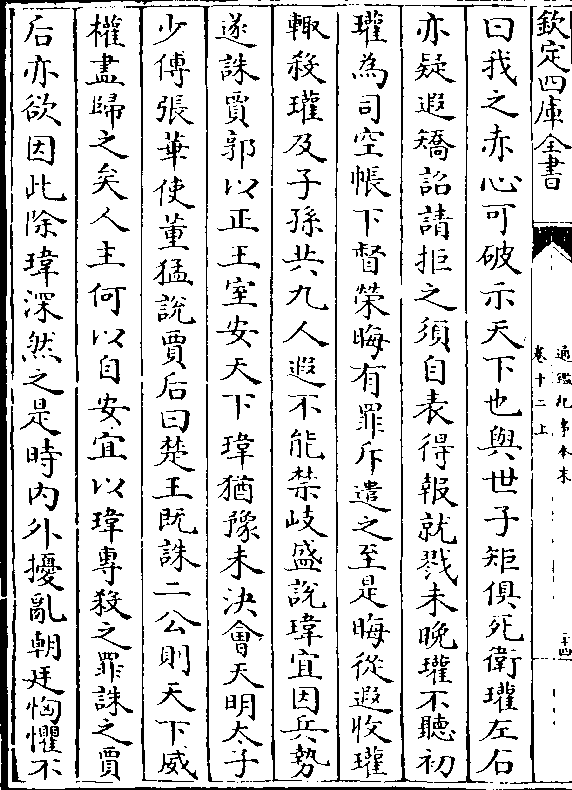 欽定四庫全書
通鑑紀事本末
卷十二上
二十四
曰我之赤心可破示天下也與世子矩俱死衛瓘左右
亦疑遐矯詔請拒之須自表得報就戮未晚瓘不聽初
瓘為司空帳下督榮晦有罪斥遣之至是晦從遐收瓘
輙殺瓘及子孫共九人遐不能禁岐盛說瑋宜因兵勢
遂誅賈郭以正王室安天下瑋猶豫未決會天明太子
少傅張華使董猛說賈后曰楚王既誅二公則天下威
權盡歸之矣人主何以自安宜以瑋專殺之罪誅之賈
后亦欲因此除瑋深然之是時内外擾亂朝廷恟懼不